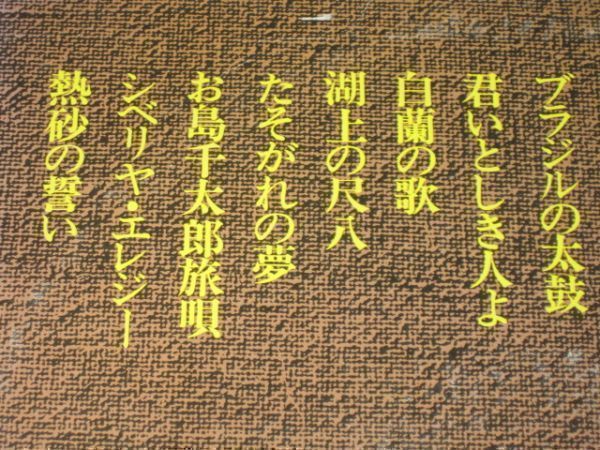 ブラジルの太鼓
君いとしき人よ
白蘭の歌
湖上の尺八
たそがれの夢
お島千太郎旅唄
シベリヤ・エレジー
熱砂の誓い